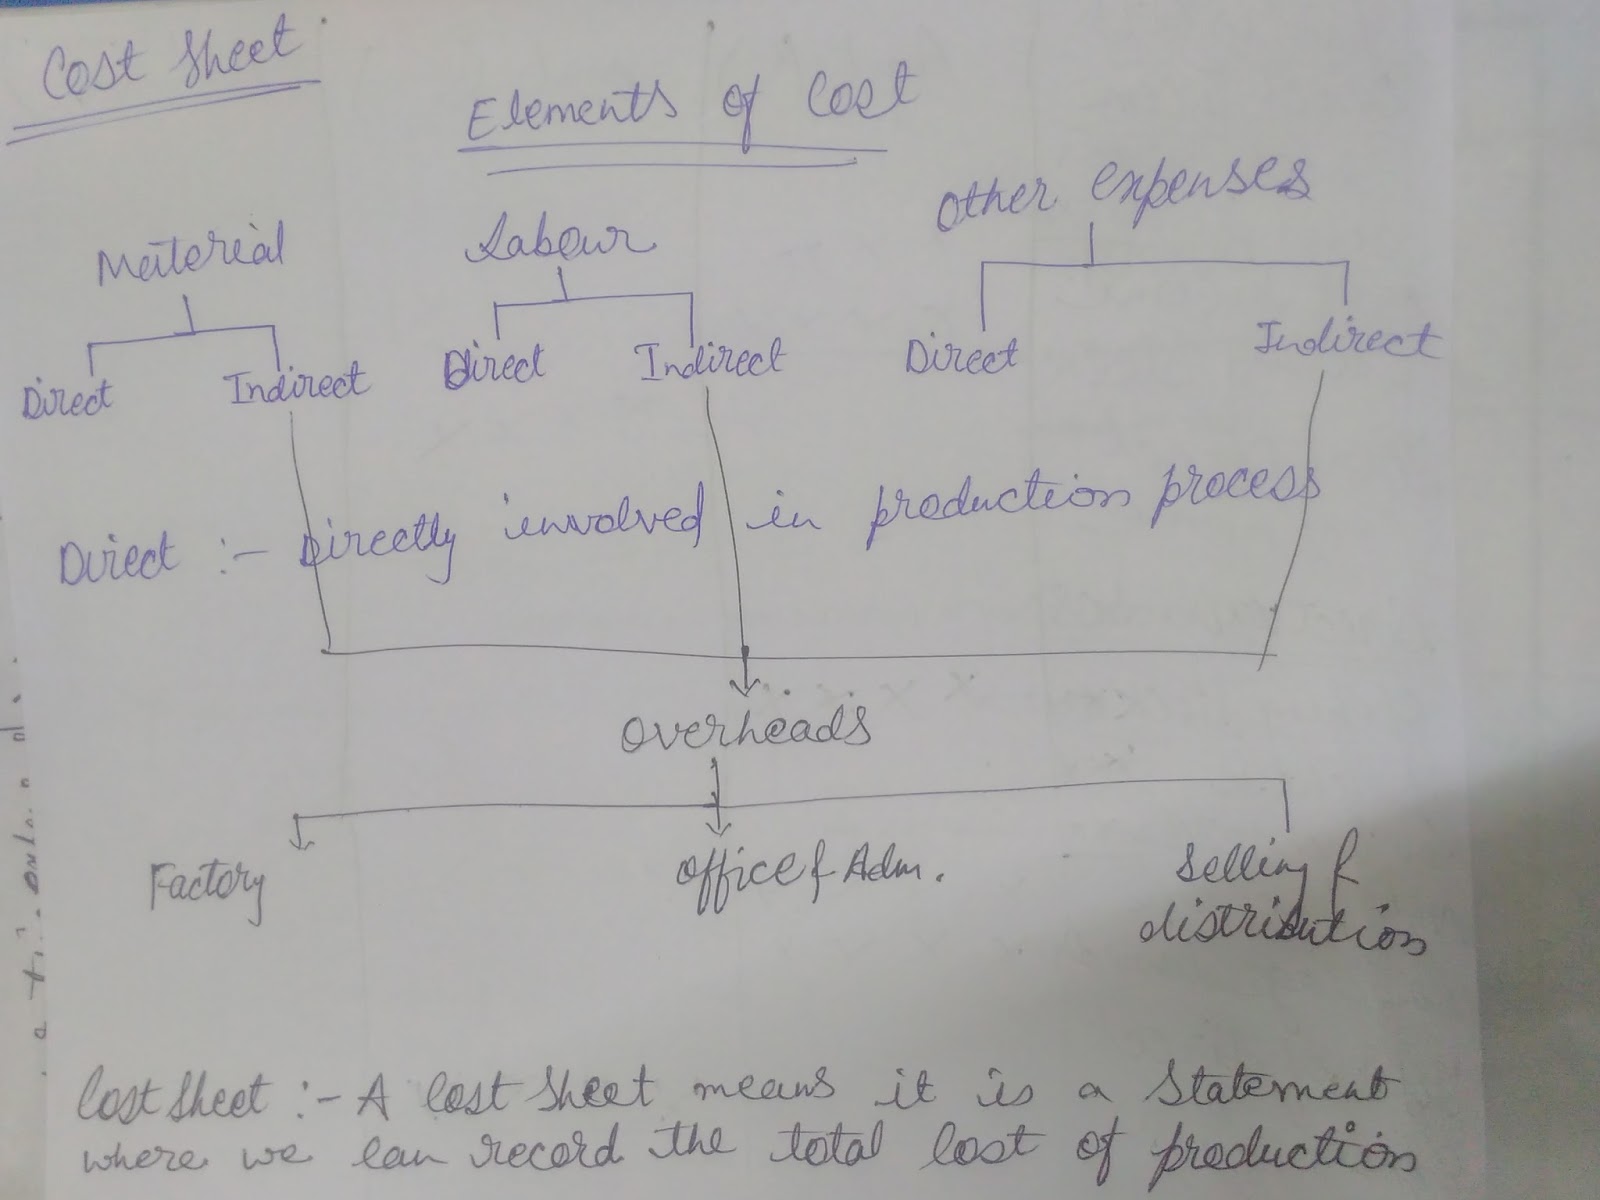 Cost Sheet
Elements of Cost
Material
Labour
Other expenses
Direct
Indirect
Direct
Indirect
Direct
Indirect
Direct :- Directly involved in production process
Overheads
Factory
Office & Adm.
Selling &
distribution
Cost Sheet :- A Cost Sheet means it is a Statement
where we can record the total cost of production